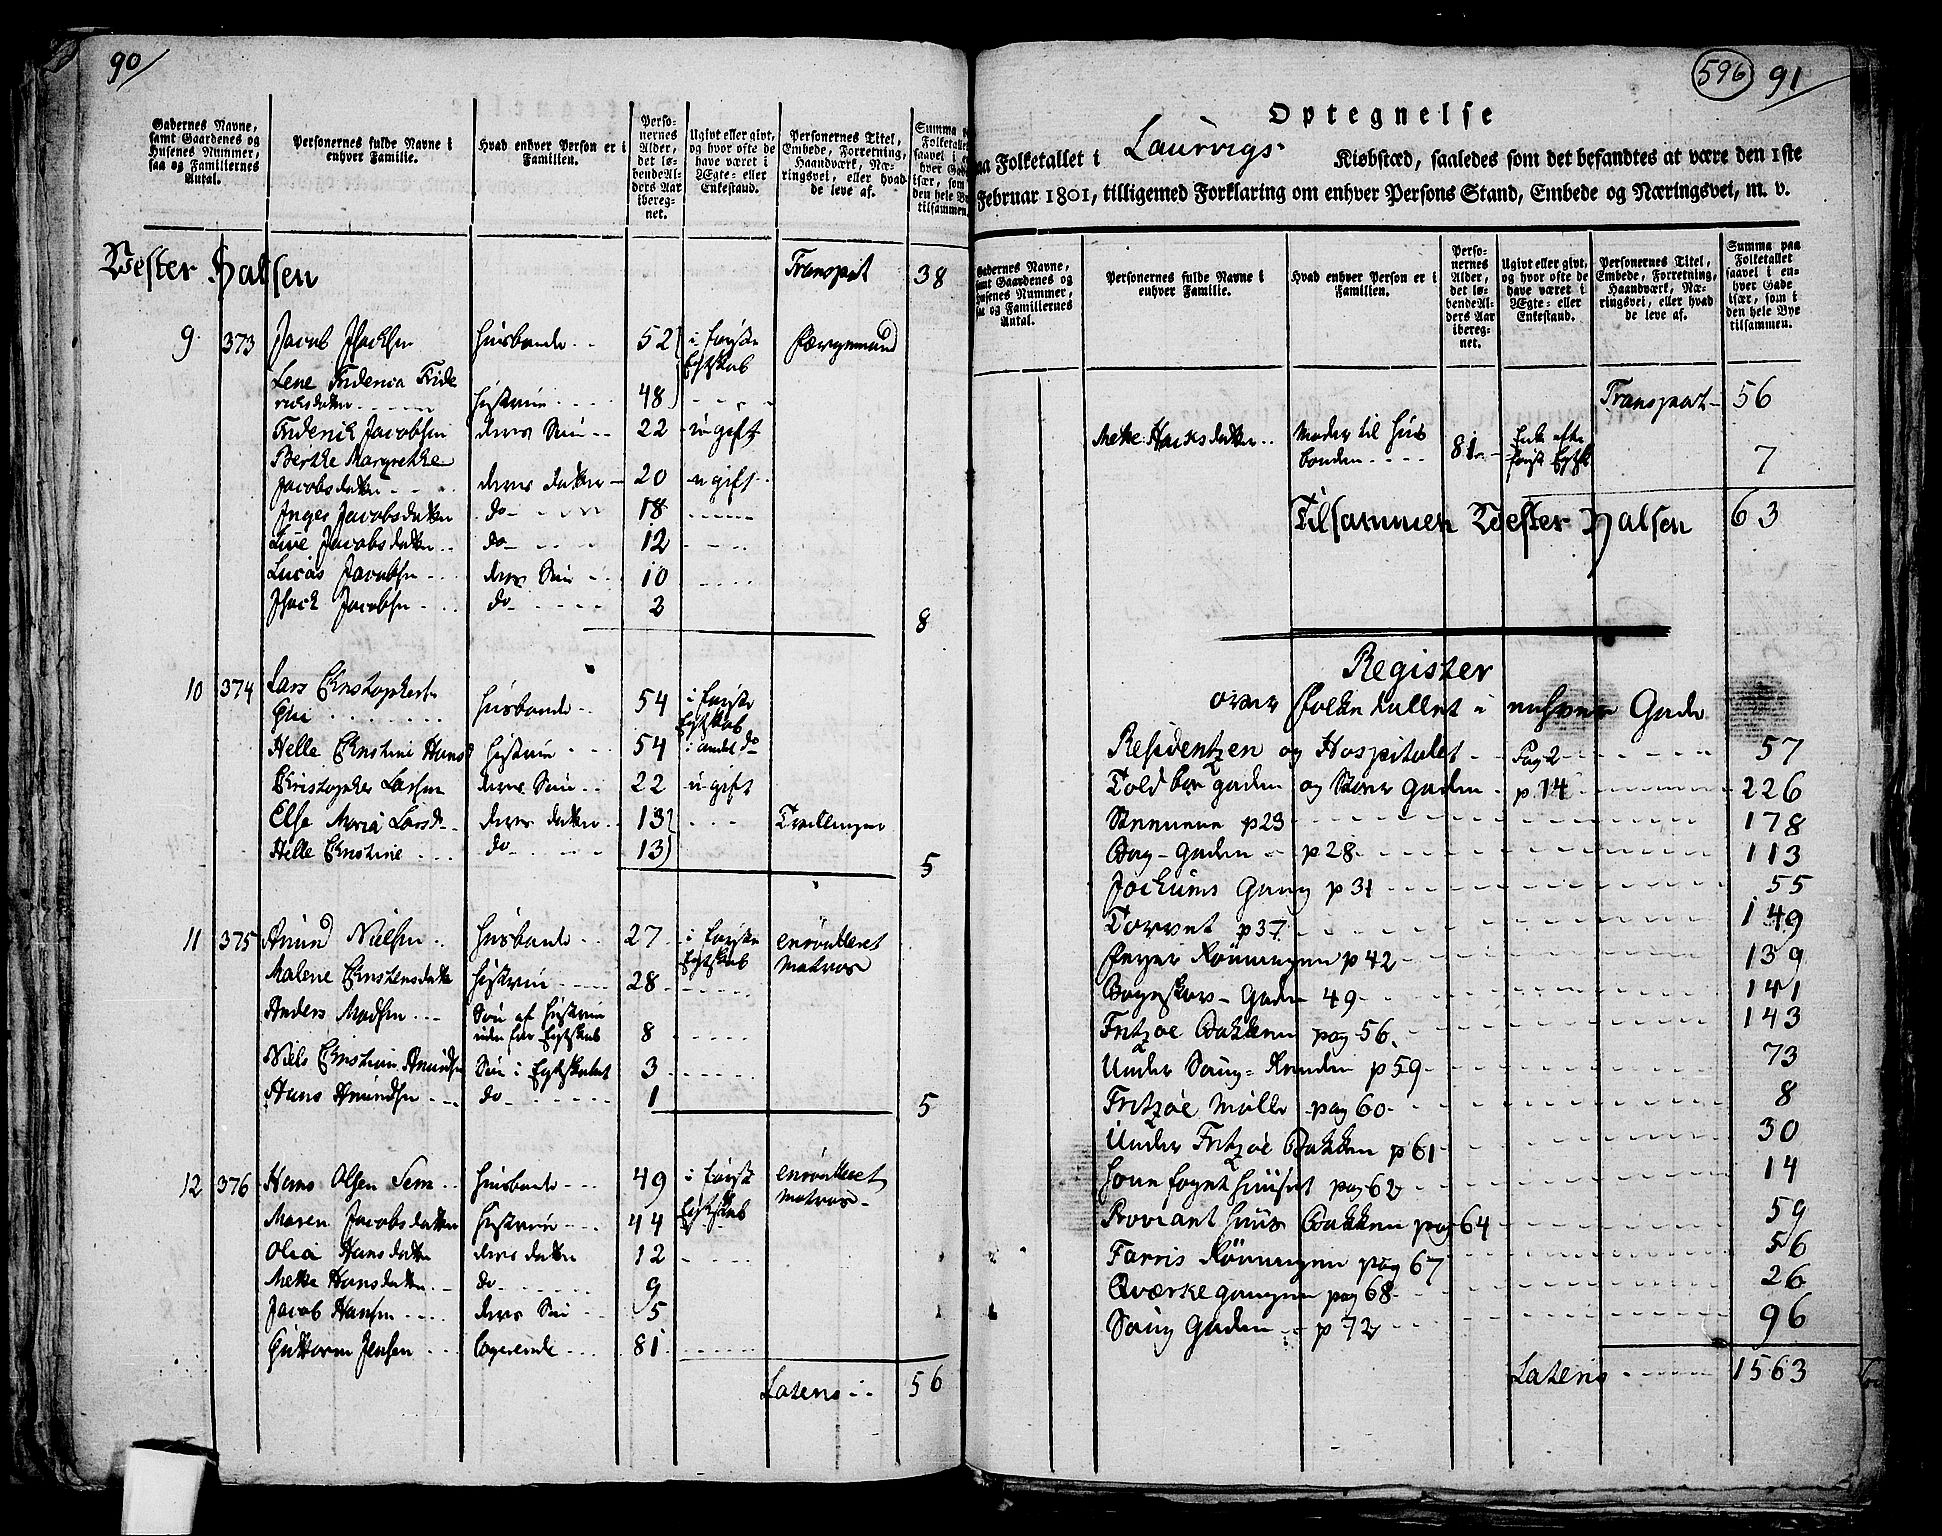 90
Gadernes Navne,
samt Gaardenes og
Husenes Nummer,
saa og Familiernes
Antal.
Personernes fulde Navne i
enhver Familie.
Hvad enhver Person er i
Familien.
Perso-
nernes
Alder,
det lø-
bende Al-
ders Aar
ibereg-
net.
Ugivt eller givt,
og hvor ofte de
have været i
Ægte- eller
Enkestand.
Personernes Titel,
Embede, Forretning,
Haandværk, Næ-
ringsvei, eller hvad
de leve af.
Wester Halsen Transport 38
9 373 Jacob Jsachsen Huusbonde 52 i første Færgemand
Egteskab
Lene Friderica Fride
richsdatter Hustrue 48
Friderich Jacobsen deres Søn 22 ugift
Birthe Margrethe
Jacobsdatter deres datter 20 ugift
Inger Jacobsdatter do 18
Live Jacobsdatter do 12
Lucas Jacobsen deres Søn 10
Jsach Jacobsen do 2
8
10 374 Lars Christophers
Gui Huusbonde 54 i første
Egteskab
Helle Christine Hansd Hustrue 54 i andet do
Christopher Larsen deres Søn 22 ugift
Else Maria Larsd deres datter 13 Tvillinger
Helle Christine do 13
5
11 375 Amund Nielsen Huusbonde 27 i første enroulleret
Egteskab matros
Malene Christensdatter Hustrue 28
Anders Madsen Søn af Hustrue
uden for Egteskab 8
Niels Christian Amundsen Søn i Egteskabet 3
Hans Amundsen do 1
5
12 376 Hans Olsen Sem Huusbonde 49 i første enroulleret
Egteskab matros
Maren Jacobsdatter Hustrue 44
Olea Hansdatter deres datter 12
Mette Hansdatter do 9
Jacob Hansen deres Søn 5
Guttorm Jensen Logerende 81
Lateris 56
596 91
Optegnelse
paa Folketallet i Laurvigs Kiøbstæd, saaledes som det befandtes at være den 1ste
Februar 1801, tilligemed Forklaring om enhver Persons Stand, Embede og Næringsvei, m. v.
Gadernes Navne,
samt Gaardenes og
Husenes Nummer,
saa og Familiernes
Antal.
Personernes fulde Navne i
enhver Familie.
Hvad enhver Person er i
Familien.
Perso-
nernes
Alder,
det lø-
bende Al-
ders Aar
ibereg-
net.
Ugivt eller givt,
og hvor ofte de
have været i
Ægte- eller
Enkestand.
Personernes Titel,
Embede, Forretning,
Haandværk, Næ-
ringsvei, eller hvad
de leve af.
Summa paa
Folketallet
saavel i en-
hver Gade
især, som i
den hele Bye
tilsammen.
Transport 56
Mette Hansdatter Moder til Huus
bonden 81 Enke efter
første Egtsk 7
Tilsammen Wester Halsen 63
Register
over Folketallet i enhver Gade
Residentzen og Hospitalet Pag 2 57
Toldboe gaden og Store Gaden p 14 226
Steenene p 23 178
Bag-Gaden p 28 113
Jochums Gang p 31 55
Torvet p 37 149
Feyer Rönningen p 42 139
Bøgeskovs-Gaden 49 141
Fritzøe Bakken pag 56 143
Under Saug-Renden p 59 73
Fritzøe Mølle pag 60 8
Under Fritzøe Bakken p 61 30
Hovefoget Huuset pag 62 14
Proviant Huus Bakken pag 64 59
Farris Rönningen pag 67 56
Qværkegangen pag 68 26
Saug Gaden p 72 96
Lateris 1563